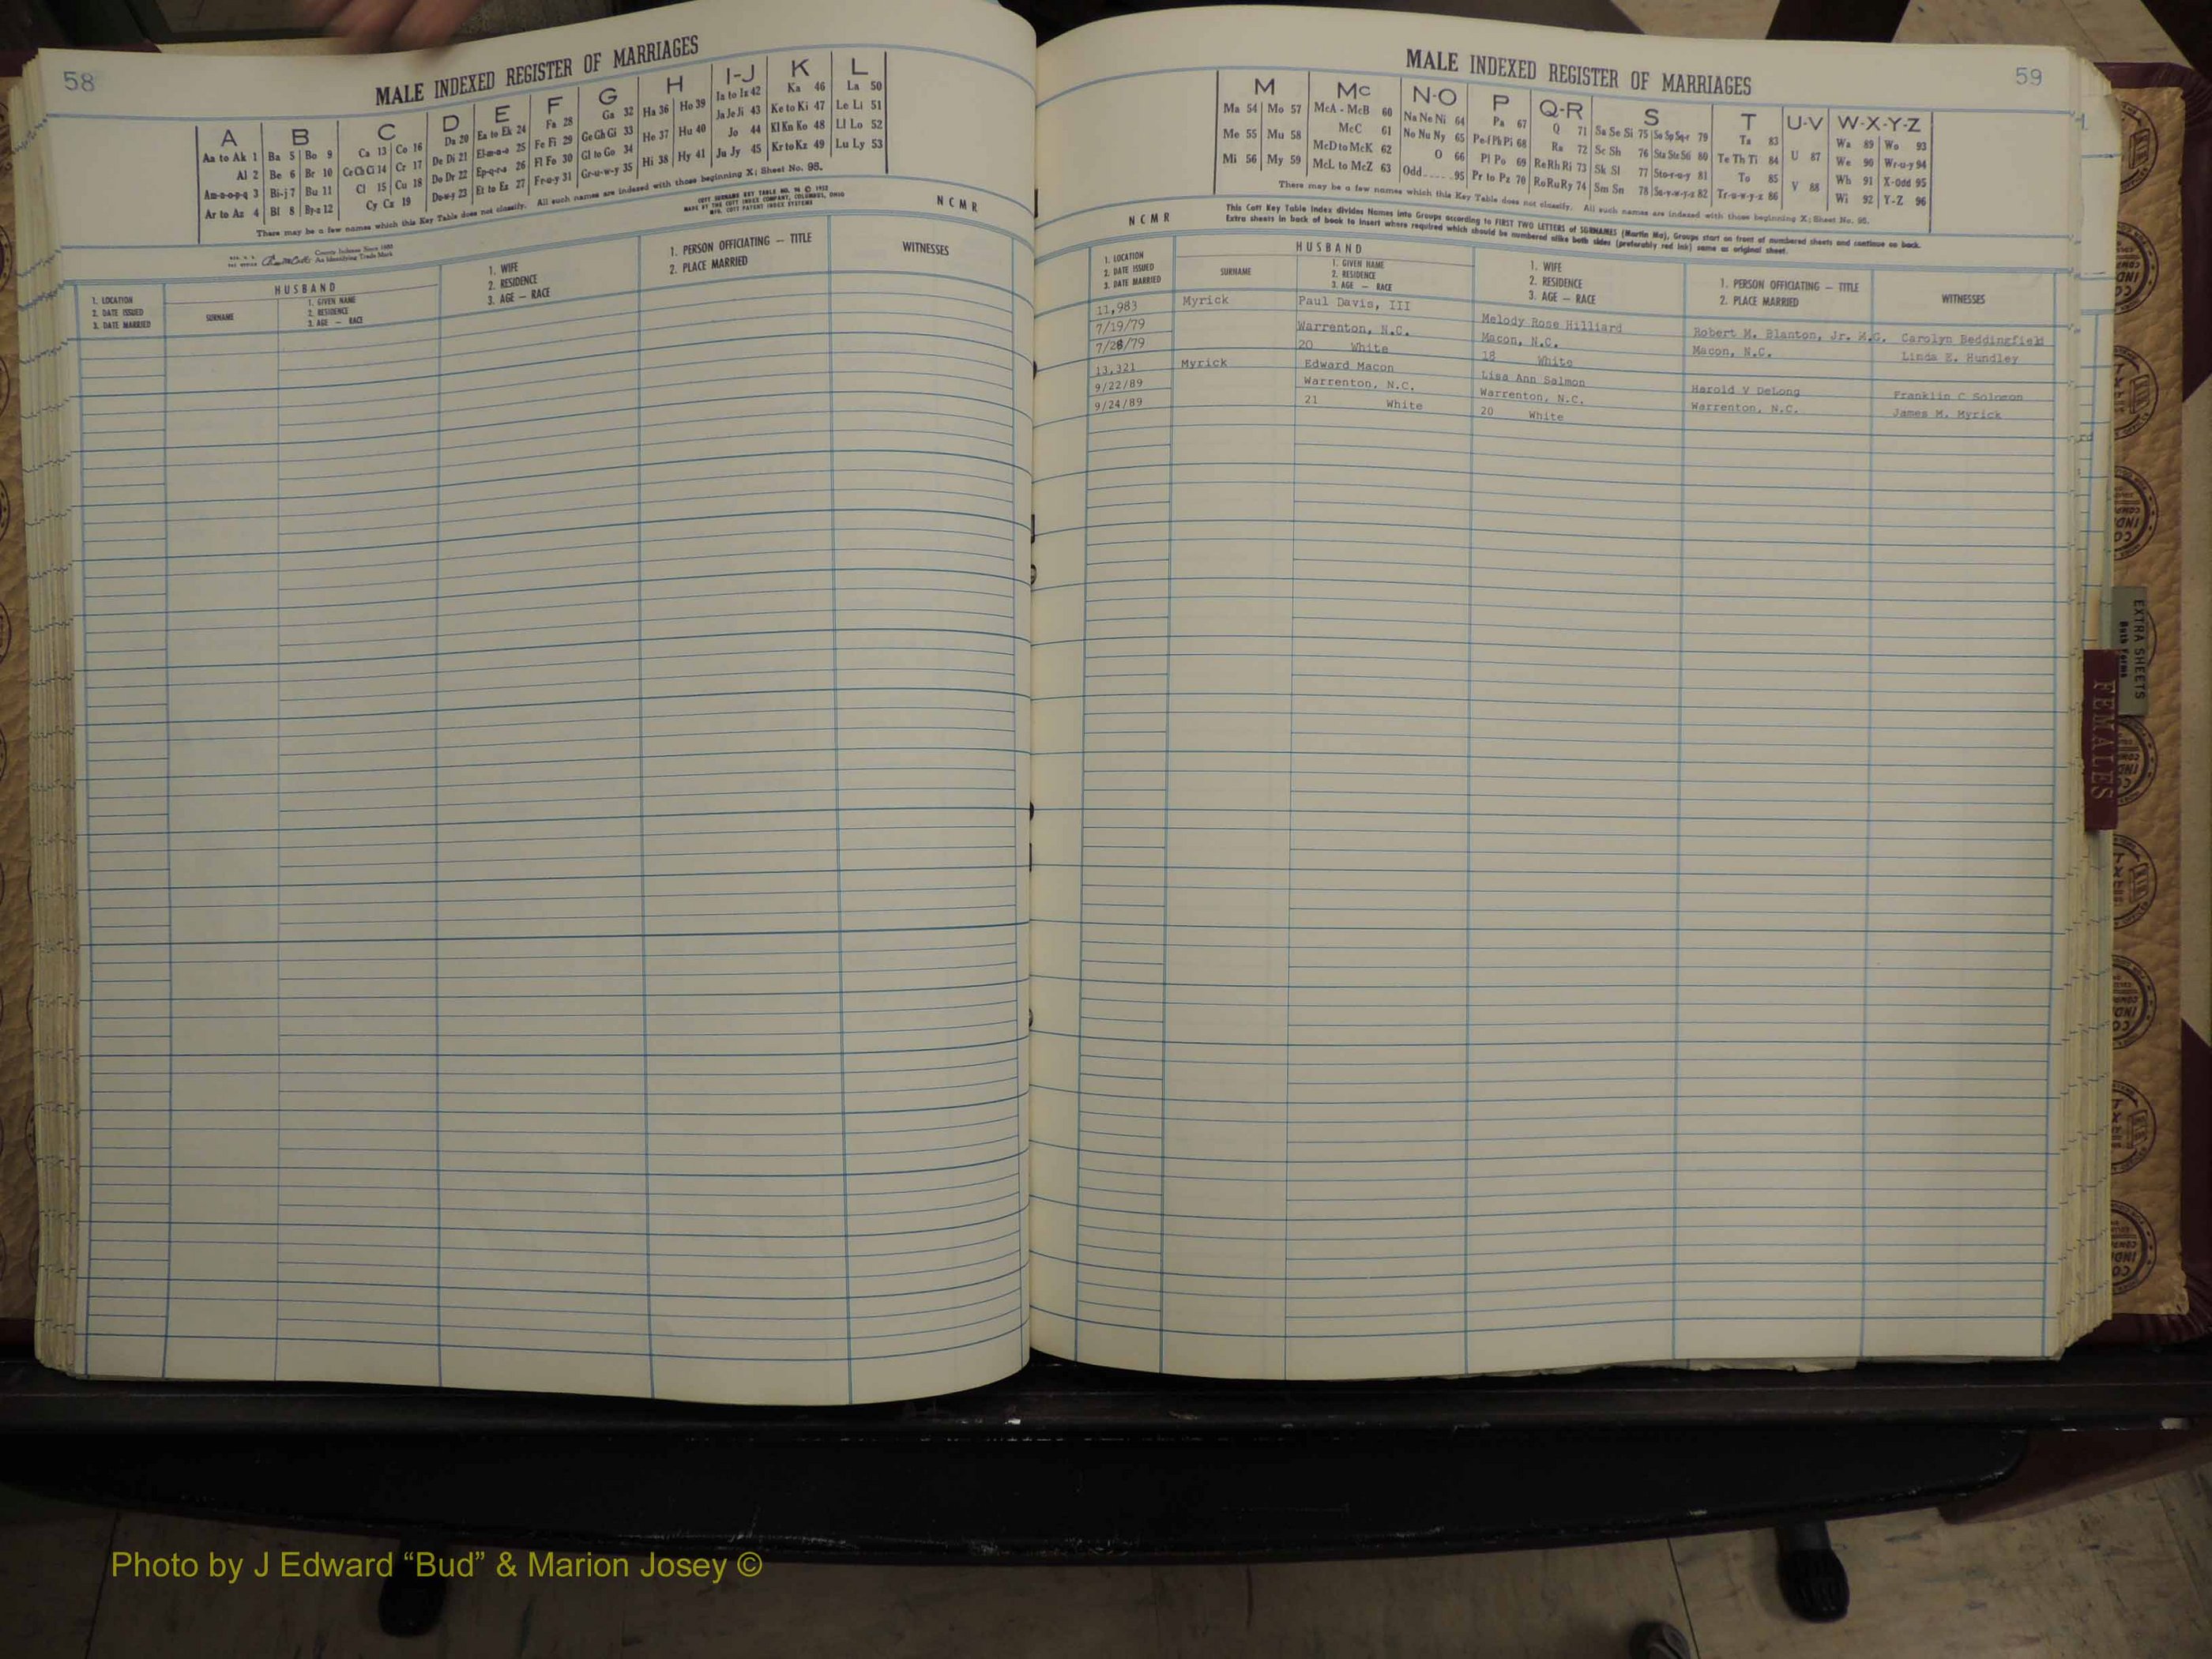 58
MALE INDEXED REGISTER OF MARRIAGES
A B C D E F G H I-J K L
Aa to Ak 1 Ba 5 Bo 9 Ca 13 Co 16 Da 20 Ea to Ek 24 Fa 28 Ga 32 Ha 36 Ho 39 Ia to Iz 42 Ka 46 La 50
Al 2 Be 6 Br 10 Ce Ch Ci 14 Cr 17 De Di 21 El-m-n-o 25 Fe Fi 29 Ge Gh Gi 33 He 37 Hu 40 Ja Je Ji 43 Ke to Ki 47 Le Li 51
Am-n-o-p-q 3 Bi-j 7 Bu 11 Cl 15 Cu 18 Do Dr 22 Ep-q-r-s 26 Fl Fo 30 Gl to Go 34 Hi 38 Hy 41 Jo 44 Kl Kn Ko 48 Ll Lo 52
Ar to Az 4 Bl 8 By-z 12 Cy Cz 19 Du-w-y 23 Et to Ez 27 Fr-u-y 31 Gr-u-w-y 35 Ju Jy 45 Kr to Kz 49 Lu Ly 53
There may be a few names which this Key Table does not classify. All such names are indexed with those beginning X; Sheet No. 95.
COTT SURNAME KEY TABLE NO. 96 © 1952
MADE BY THE COTT INDEX COMPANY, COLUMBUS, OHIO
MFG. COTT PATENT INDEX SYSTEMS
NCMR
County Indexes Since 1888
An Identifying Trade Mark
1. LOCATION
2. DATE ISSUED
3. DATE MARRIED
HUSBAND
SURNAME
1. GIVEN NAME
2. RESIDENCE
3. AGE — RACE
1. WIFE
2. RESIDENCE
3. AGE — RACE
1. PERSON OFFICIATING — TITLE
2. PLACE MARRIED
WITNESSES
MALE INDEXED REGISTER OF MARRIAGES
59
M Mc N-O P Q-R S T U-V W-X-Y-Z
Ma 54 Mo 57 McA - McB 60 Na Ne Ni 64 Pa 67 Q 71 Sa Se Si 75 So Sp Sq-r 79 Ta 83 U 87 Wa 89 Wo 93
Me 55 Mu 58 McC 61 No Nu Ny 65 Pe-f Ph Pi 68 Ra 72 Sc Sh 76 Sta Ste Sti 80 Te Th Ti 84 V 88 We 90 Wr-u-y 94
Mi 56 My 59 McD to McK 62 O 66 Pl Po 69 Re Rh Ri 73 Sk Sl 77 Sto-r-u-y 81 To 85 Wh 91 X-Odd 95
McL to McZ 63 Odd 95 Pr to Pz 70 Ro Ru Ry 74 Sm Sn 78 Su-v-w-y-z 82 Tr-u-w-y-z 86 Wi 92 Y-Z 96
There may be a few names which this Key Table does not classify. All such names are indexed with those beginning X; Sheet No. 95.
NCMR
This Cott Key Table Index divides Names into Groups according to FIRST TWO LETTERS of SURNAMES (Martin Ma), Groups start on front of numbered sheets and continue on back.
Extra sheets in back of book to insert where required which should be numbered alike both sides (preferably red ink) same as original sheet.
1. LOCATION
2. DATE ISSUED
3. DATE MARRIED
HUSBAND
SURNAME
1. GIVEN NAME
2. RESIDENCE
3. AGE — RACE
1. WIFE
2. RESIDENCE
3. AGE — RACE
1. PERSON OFFICIATING — TITLE
2. PLACE MARRIED
WITNESSES
11,983 Myrick Paul Davis, III Melody Rose Hilliard Robert M. Blanton, Jr. M.G. Carolyn Beddingfield
7/19/79 Warrenton, N.C. Macon, N.C. Macon, N.C. Linda E. Hundley
7/28/79 20 White 18 White
13,321 Myrick Edward Macon Lisa Ann Salmon Harold V DeLong Franklin C Solomon
9/22/89 Warrenton, N.C. Warrenton, N.C. Warrenton, N.C. James M. Myrick
9/24/89 21 White 20 White
EXTRA SHEETS
Both Forms
FEMALES
Photo by J Edward “Bud” & Marion Josey ©